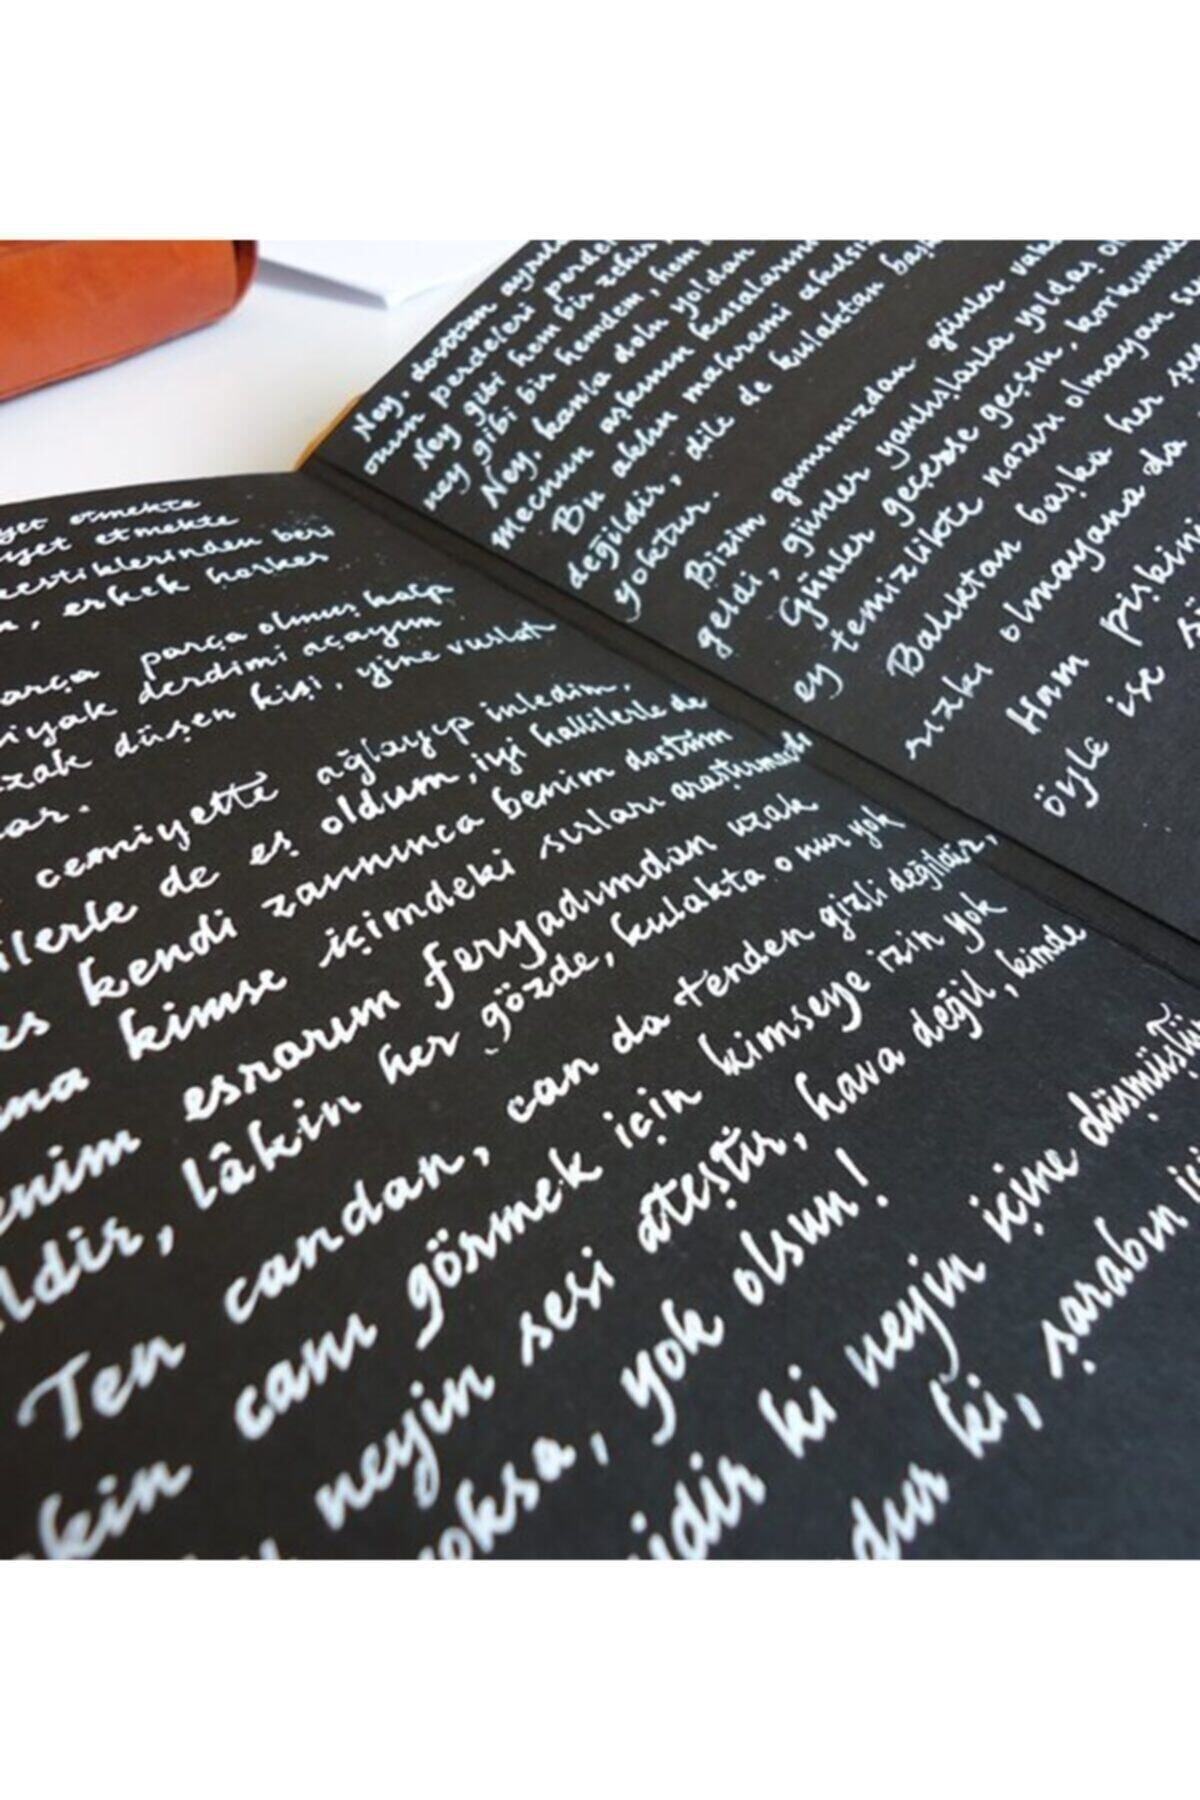 yet etmekte
yet etmekte
kestiklerinden beri
erkek herkes
parça olmuş kalp
derdimi açayım
düşen kişi, yine vuslat
cemiyette ağlayıp inledim,
de eş oldum, iyi hallilerle de
kendi zannınca benim dostum
kimse içimdeki sırları araştırmadı
esrarım feryadımdan uzak
ldir, lâkin her gözde, kulakta o nur yok
Ten candan, can da tenden gizli değildir,
kin canı görmek için kimseye izin yok
neyin sesi ateştir, hava değil, kimde
oksa, yok olsun!
idir ki neyin içine düşmüştü
dur ki, şarabın iç
Ney, dosttan ayrıl
onun perdeleri perdel
Ney gibi hem bir zehir
ney gibi bir hemdem, hem
Ney, kanla dolu yoldan
mecnun aşkının kıssalarını
Bu aklın mahremi akılsız
değildir, dile de kulaktan baş
yoktur.
Bizim gamımızdan günler vak
geldi, günler yanışlarla yoldaş ol
Günler geçerse geçsin, korkumu
ey temizlikte naziri olmayan se
Balıktan başka her şey
rızkı olmayana da
Ham pişkini
öyle ise